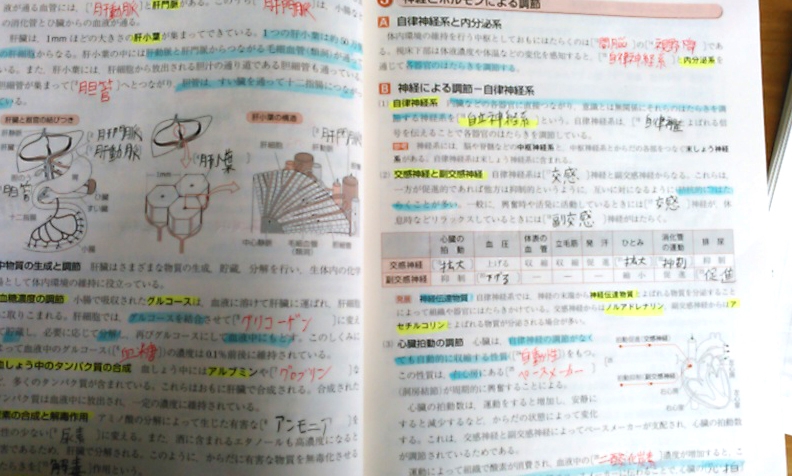 液が通る血管には，[肝動脈]と肝門脈がある。
の消化管とひ臓からの血液が通る。
肝臓は，1mmほどの大きさの肝小葉が集まってできている。1つの肝小葉は約
の肝細胞からなる。肝小葉の中には肝動脈と肝門脈からつながる毛細血管(類洞)が通って
いる。また，肝小葉には，肝細胞から放出される胆汁の通り道である胆細管も通っている。
細管が集まって[胆管]へとつながり，胆汁は，すい臓を通って十二指腸につながって
いる。
肝臓と器官の結びつき
肝静脈
肝動脈
[肝門脈
[肝動脈
[肝小葉
胆管
胆のう
胃
ひ臓
すい臓
十二指腸
小腸
1mm
肝小葉の構造
[肝門脈
肝細胞
肝動脈
胆細管
胆管
中心静脈
毛細血管
(類洞)
中物質の生成と調節 肝臓はさまざまな物質の生成，貯蔵，分解を行い，生体内の化学
して体内環境の維持に役立っている。
血糖濃度の調節 小腸で吸収されたグルコースは，血液に溶けて肝臓に運ばれ，肝細胞
に取りこまれる。肝細胞では，グルコースを結合させて[グリコーゲン]に変え
て貯蔵し，必要に応じて分解し，再びグルコースにして血液中にもどす。このしくみに
よって血液中のグルコース([血糖])の濃度は0.1%前後に維持されている。
血しょう中のタンパク質の合成 血しょう中にはアルブミンや[グロブリン]な
ど，多くのタンパク質が含まれている。これらはおもに肝臓で合成される。合成された
タンパク質は血液中に放出され，一定の濃度に維持されている。
尿素の合成と解毒作用 アミノ酸の分解によって生じた有害な[アンモニア]を
毒性の少ない[尿素]に変える。また，酒に含まれるエタノールも高濃度になると
有害で，肝臓で分解される。このように，からだに有害な物質を無毒化させる
はたらきを[解毒]作用という。
神経とホルモンによる調節
A 自律神経系と内分泌系
体内環境の維持を行う中枢としておもにはたらくのは[間脳]の[視床下部]であ
る。視床下部は体液濃度や体温などの変化を感知すると，[自律神経系]と内分泌系を
通じて各器官のはたらきを調節する。
B 神経による調節－自律神経系
(1) 自律神経系 内臓などの各器官に直接つながり，意識とは無関係にそれらのはたらきを調
節する神経系を[自律神経系]という。自律神経系は，[自律 よばれる信
号を伝えることで各器官のはたらきを調節している。
参考 神経系には，脳や脊髄などの中枢神経系と，中枢神経系とからだの各部をつなぐ末しょう神経
系がある。自律神経系は末しょう神経系に含まれる。
(2) 交感神経と副交感神経 自律神経系は[交感]神経と副交感神経からなる。これらは，
一方が促進的であれば他方は抑制的というように，互いに対になるように拮抗的にはた
らくことが多い。一般に，興奮時や活発に活動しているときには[交感]神経が，休
息時などリラックスしているときには[副交感]神経がはたらく。
心臓の拍動 血圧 体表の血管 立毛筋 発汗 ひとみ 消化管の運動 排尿
交感神経 拡大 上げる 収縮 収縮 促進 拡大 抑制
副交感神経 下げる － － － 縮小 促進 促進
発展 神経伝達物質 自律神経系では，神経の末端から神経伝達物質とよばれる物質を分泌すること
によって組織や器官にはたらきかけている。交感神経からはノルアドレナリン，副交感神経からはア
セチルコリンとよばれる物質が分泌される場合が多い。
(3) 心臓拍動の調節 心臓は，自律神経の調節がなく
ても自動的に収縮する性質([自動性])をもつ。
この性質は，右心房にある[ペースメーカー]
(洞房結節)が周期的に興奮することによる。
心臓の拍動数は，運動をすると増加し，安静に
すると減少するなど，からだの状態によって変化
する。これは，交感神経と副交感神経によってペースメーカーが支配され，心臓の拍動数が
調節されているためである。
運動によって組織で酸素が消費され，血液中の[二酸化炭素]濃度が増加すると，こ
拍動促進:交感神経
拍動抑制:副交感神経
右心房
左心室